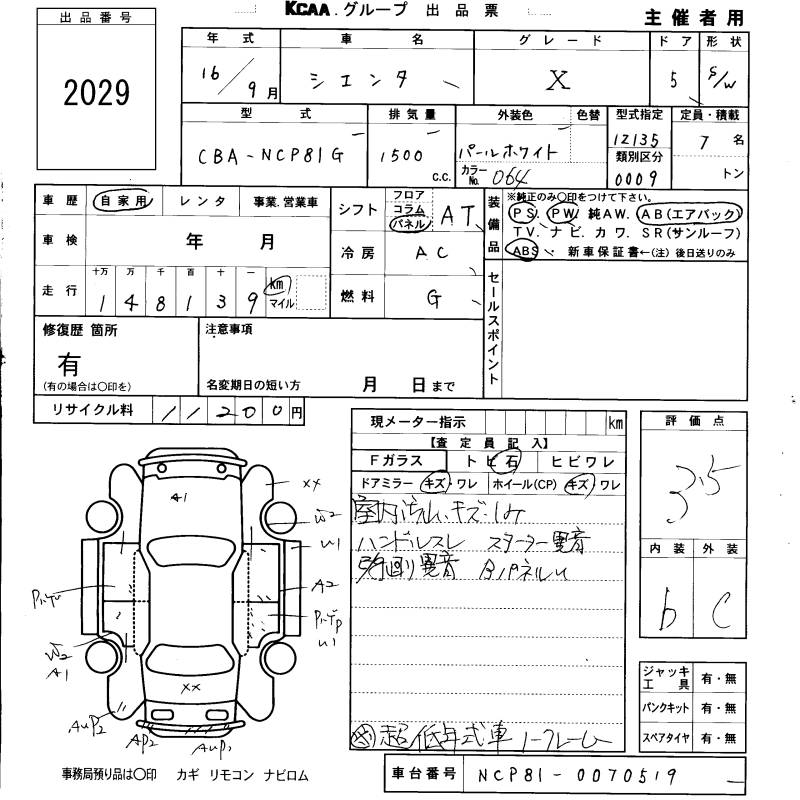 KCAA.グループ 出品票
主催者用
出品番号
2029
年式 車名 グレード ドア 形状
16/9月 シエンタ X 5 S/W
型式 排気量 外装色 色替 型式指定 定員・積載
CBA-NCP81G 1500 c.c. パールホワイト 12135 7名
カラーNo. 064 類別区分 0009 トン
車歴 自家用 レンタ 事業.営業車
車検 年 月
走行 十万 万 千 百 十 一
148139 km マイル
シフト フロア コラム パネル AT
冷房 AC
燃料 G
装備品
※純正のみ○印をつけて下さい。
PS. PW. 純AW. AB(エアバック)
TV. ナビ. カワ. SR(サンルーフ)
ABS 新車保証書←(注) 後日送りのみ
セールスポイント
修復歴 箇所
有
(有の場合は○印を)
注意事項
名変期日の短い方 月 日まで
リサイクル料 11200円
現メーター指示 km
【査定員記入】
Fガラス トビ石 ヒビワレ
ドアミラー キズ・ワレ ホイール(CP) キズ・ワレ
ハンドルスレ スターター異音
異音 BパネルU
低年式車 ノークレーム
評価点
3.5
内装 外装
b C
ジャッキ工具 有・無
パンクキット 有・無
スペアタイヤ 有・無
A1
XX
W2
U1
A2
U1
W2
A1
XX
AUP2
AP2
AUP1
事務局預り品は○印 カギ リモコン ナビロム
車台番号 NCP81-0070519